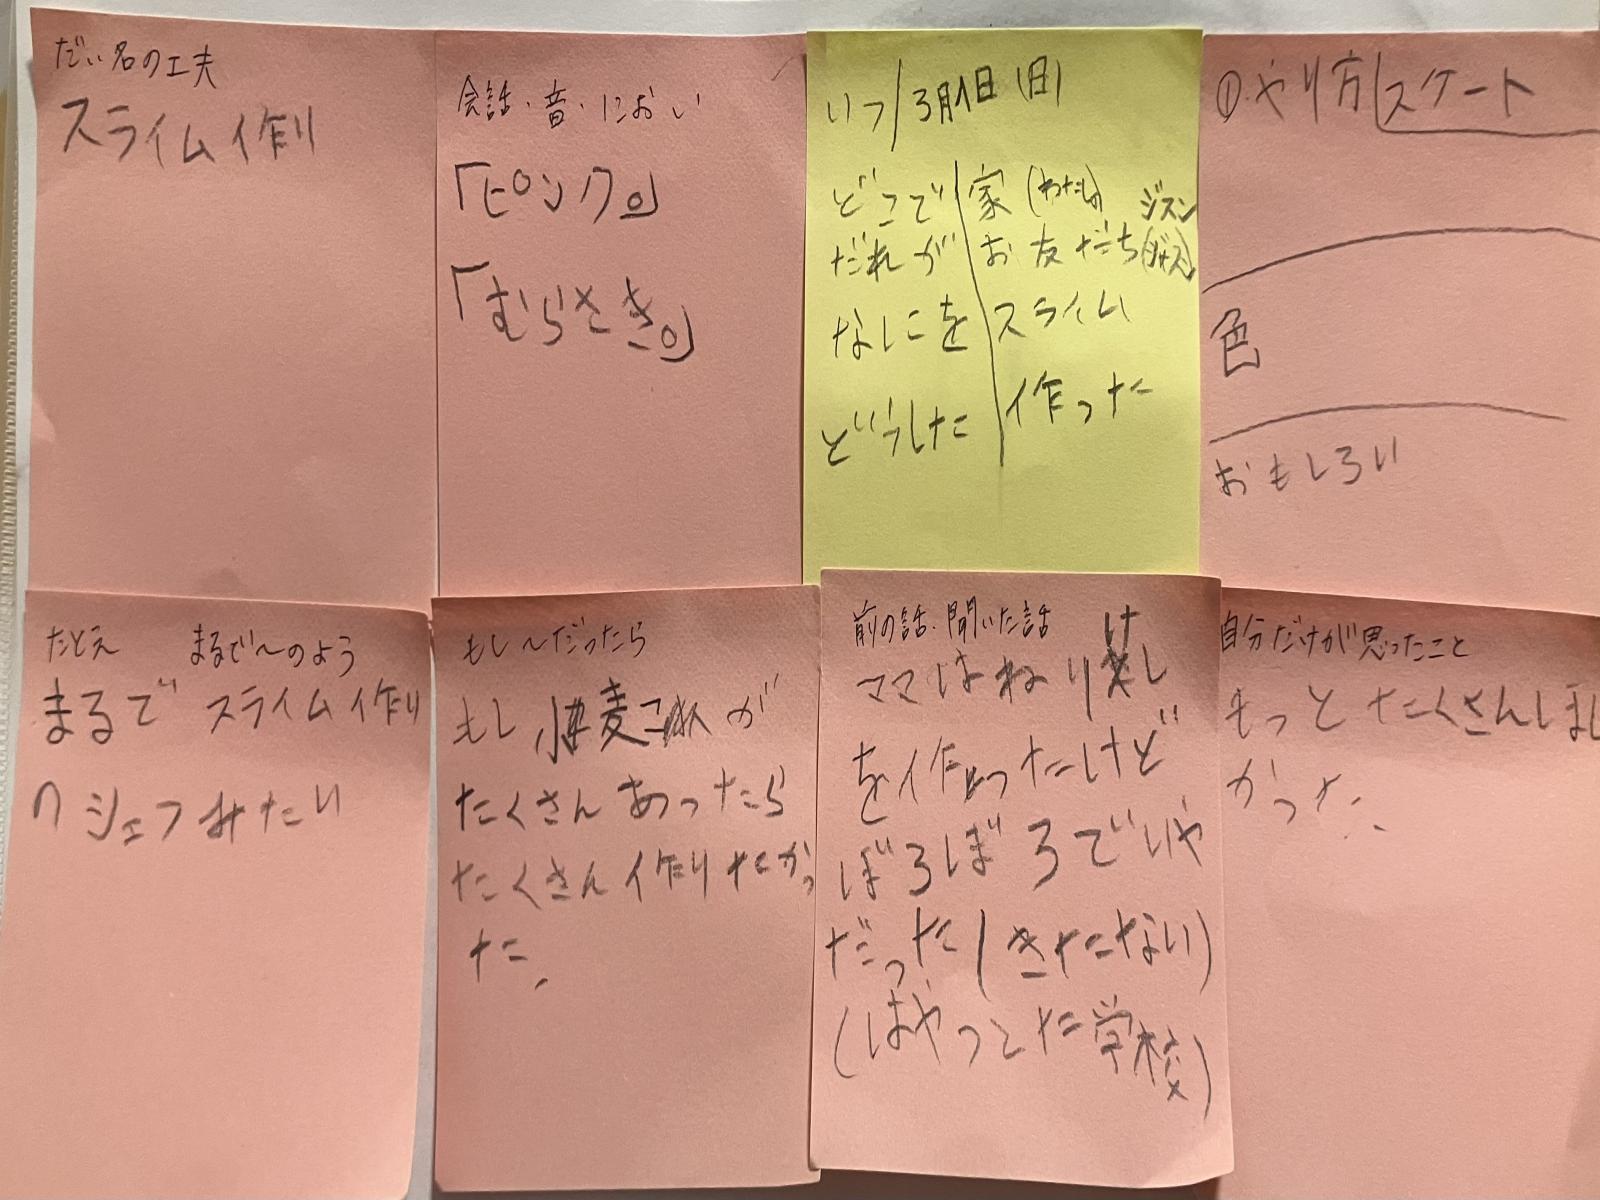 だい名の工夫
スライム作り
会話・音・におい
「ピンク。」
「むらさき。」
いつ/3月1日(日)
どこで 家(わたしの) ジスン
だれが お友だち
なにを スライム
どうした 作った
①やり方 スタート
色
おもしろい
たとえ まるで〜のよう
まるで スライム作り
のシェフみたい
もし〜だったら
もし小麦こが
たくさんあったら
たくさん作りたかっ
た。
前の話・聞いた話
ママはねりけし
を作ったけど
ぼろぼろでいや
だった(きたない)
(はやっとた学校)
自分だけが思ったこと
もっとたくさんしまし
かった。